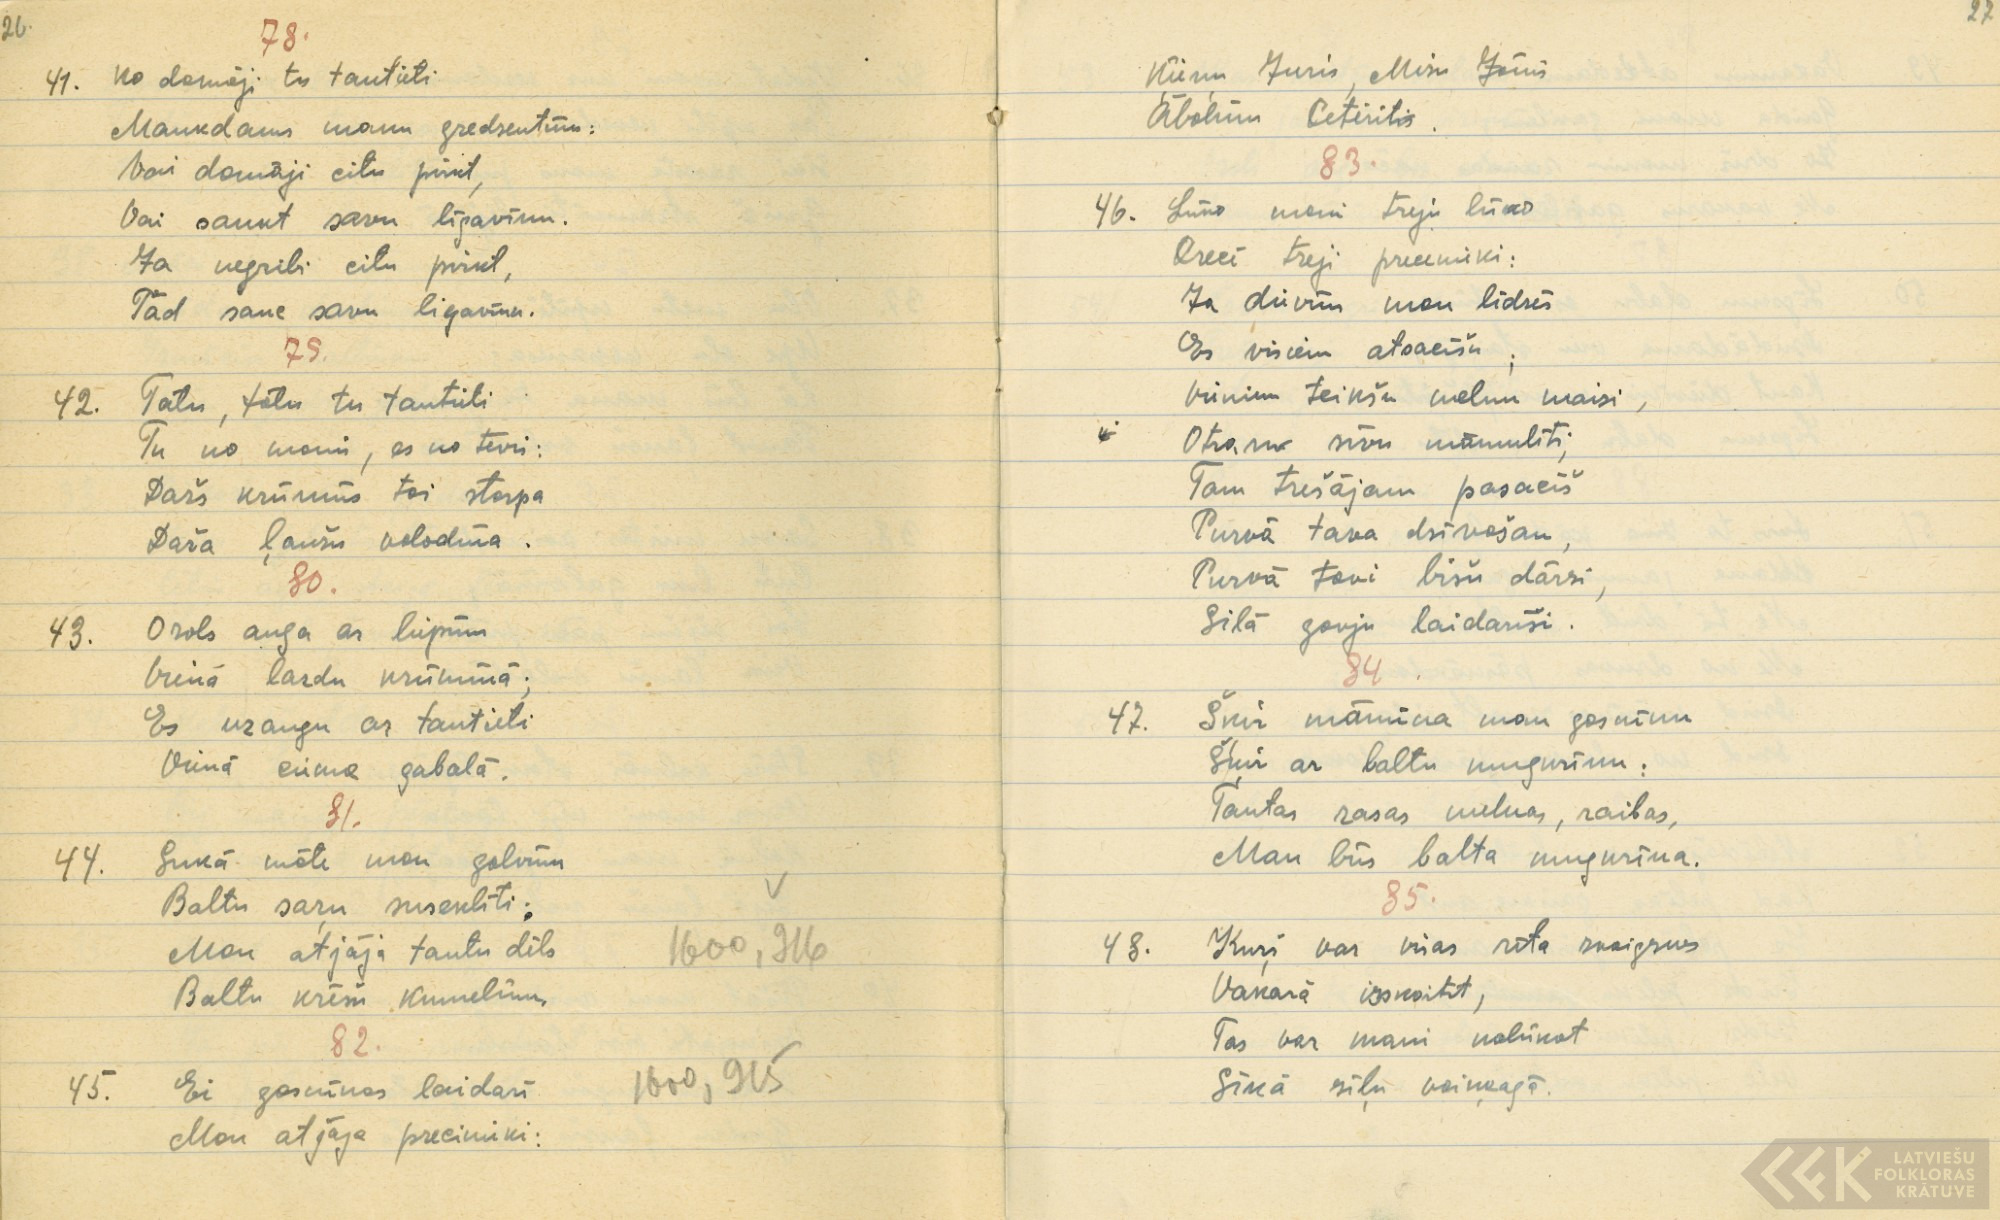 26.
78.
41. Ko domāji tu tautieti
Maukdams manu gredzentiņu:
Vai domāji citu pirkt,
Vai saukt savu līgaviņu.
Ja negribi citu pirkt,
Tad sauc savu ligaviņu.
79.
42. Tālu, tālu tu tautieti
Tu no mani, es no tevi:
Dažs krūmiņš tai starpa
Daža ļaužu valodiņa.
80.
43. Ozols auga ar liepiņu
Vienā lazdu krūmiņā;
Es uzaugu ar tautieti
Vienā ciema gabalā.
81.
44. Sukā māte man galviņu
Baltu saru susekliti;
Man atjāja tautu dēls
Baltu krēšu kumeliņu.
1600, 916
82.
45. Ei gosniņas laidarī
Man atjāja preciniki:
1600, 915
27
Ķieņu Juris, Mizu Jānis
Ābolūn Ceteritis.
83.
46. Lūko mani treju lūko
Precē treji preceniki:
Ja dieviņš man līdzēs
Es visiem atsacīšu;
Vienam teikšu melnu maizi,
Otram sīvu māmulīti;
Tam trešājam pasacīš
Purvā tava dzīvošan,
Purvā tavi bišu dārzi,
Silā govju laidariši.
84.
47. Šķir māmiņa man gosniņu
Šķir ar baltu muguriņu:
Tautas rasas melnas, raibas,
Man būs balta muguriņa.
85.
48. Kurš var visas rīta zvaigznes
Vakarā izskaitīt,
Tas var mani nolūkot
Sīkā zīļu vaiņagā.
LATVIEŠU
FOLKLORAS
KRĀTUVE